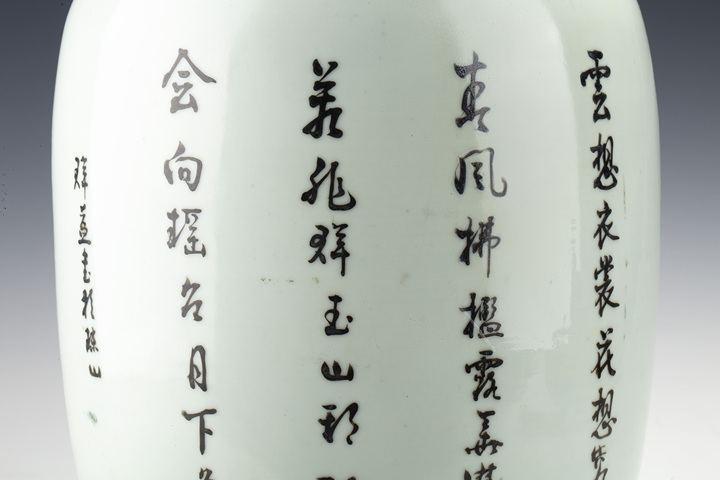 雲想衣裳花想
春風拂檻露華濃
若非群玉山頭
会向瑤台月下
書於珠山